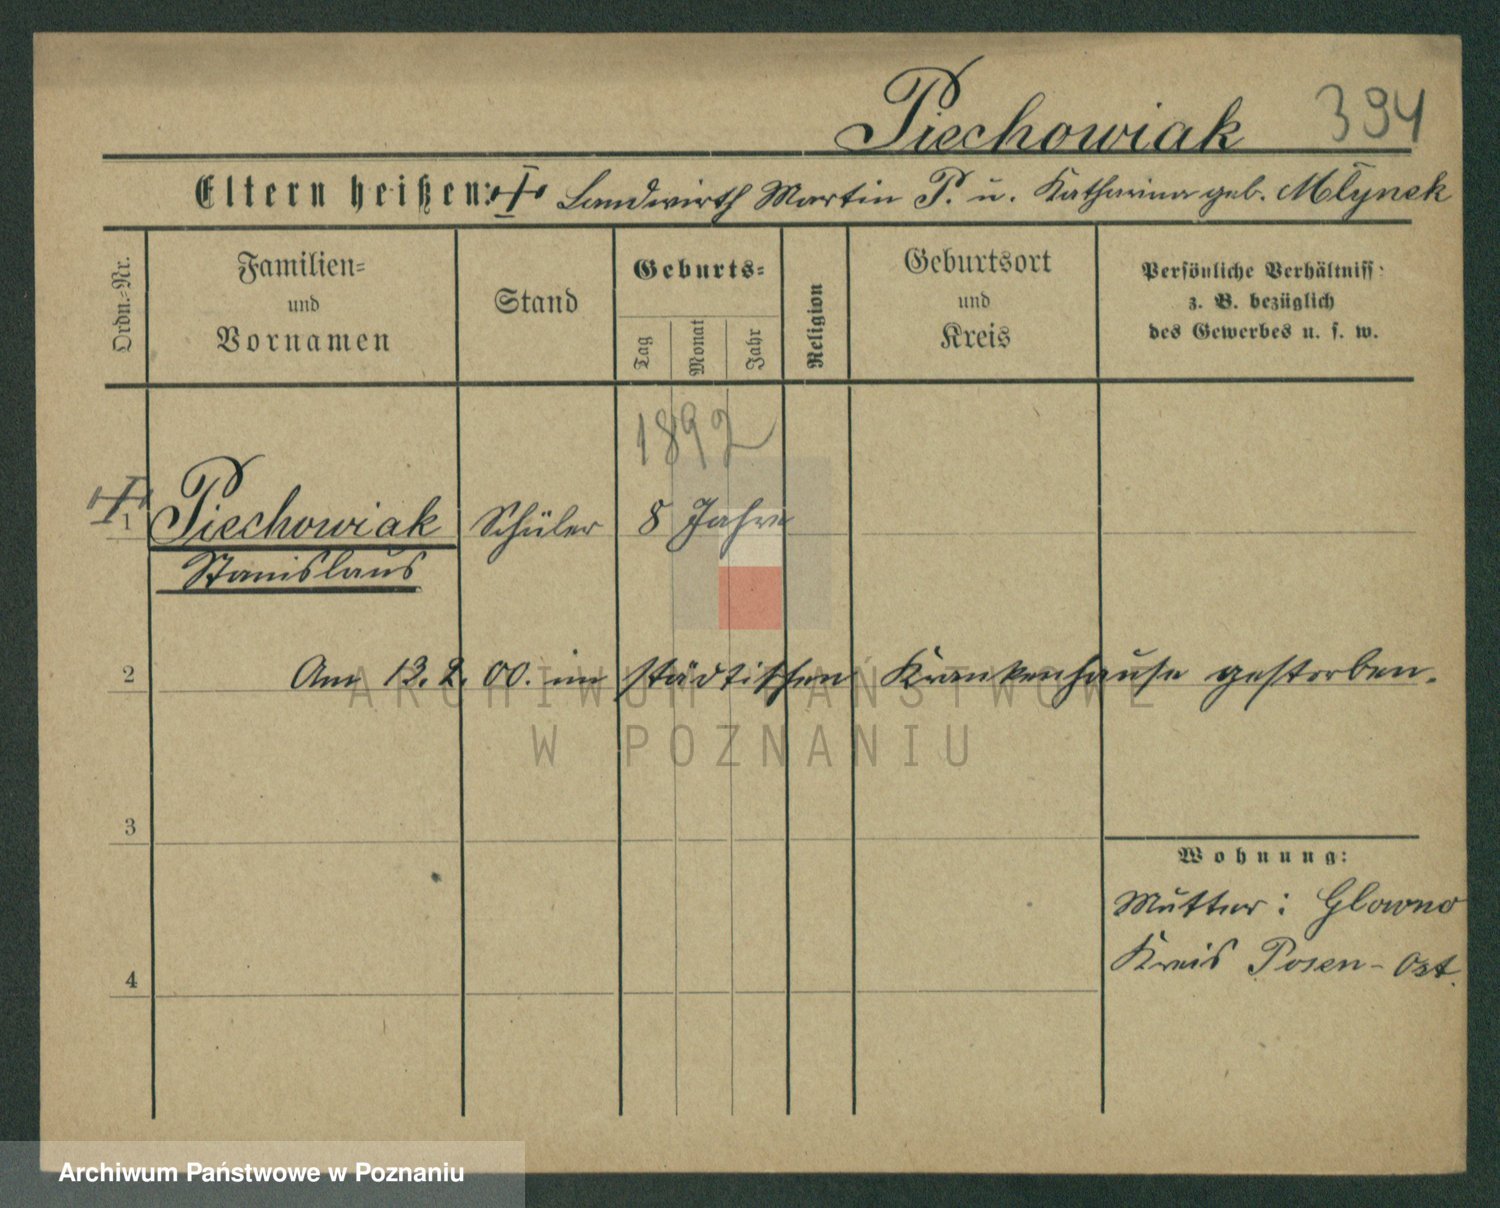 Piechowiak 394
Eltern heißen: Landwirth Martin P. u. Katharina geb. Młynek
Ordn.-Nr.
Familien-
und
Vornamen
Stand
Geburts-
Tag
Monat
Jahr
Religion
Geburtsort
und
Kreis
Persönliche Verhältniss:
z. B. bezüglich
des Gewerbes u. s. w.
1892
1 Piechowiak Schüler 8 Jahre
Stanislaus
2 Am 13. 2. 00. im städtischen Krankenhause gestorben.
ARCHIWUM PAŃSTWOWE
W POZNANIU
3
Wohnung:
Mutter: Glowno
Kreis Posen-Ost.
4
Archiwum Państwowe w Poznaniu